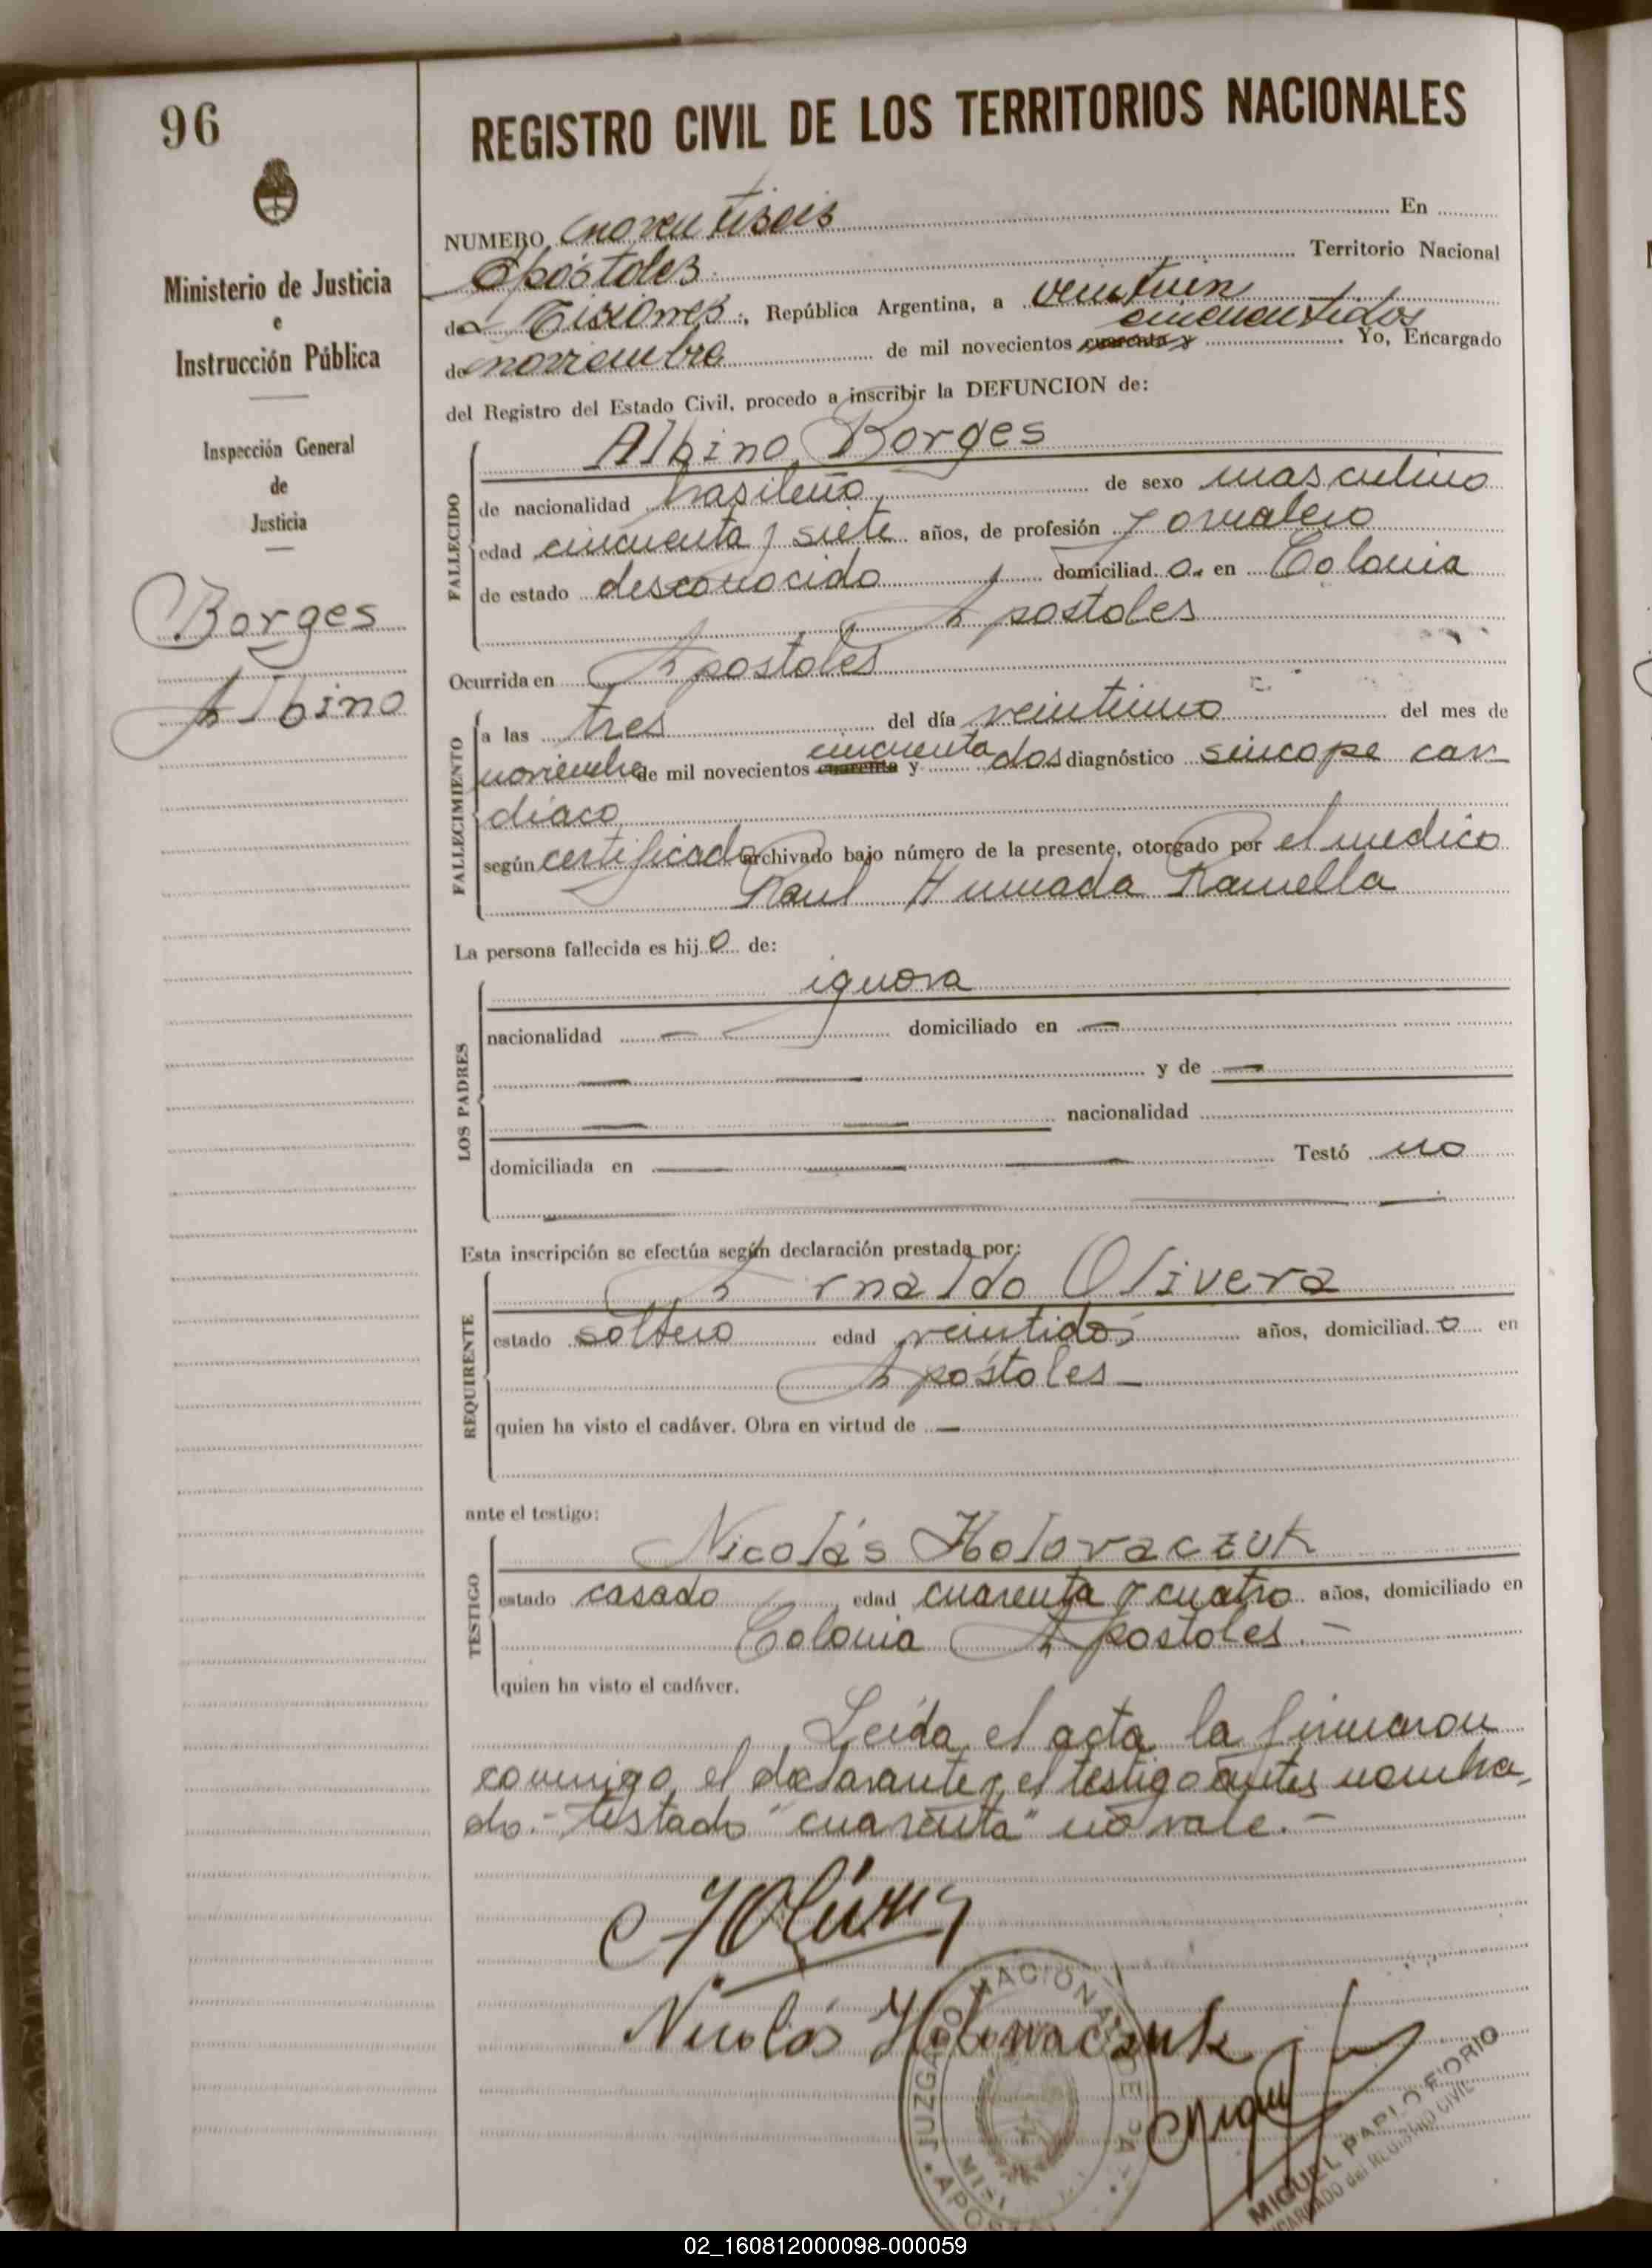 96
Ministerio de Justicia
e
Instrucción Pública
Inspección General
de
Justicia
Borges
Albino
REGISTRO CIVIL DE LOS TERRITORIOS NACIONALES
NUMERO noventiseis En
Apóstoles Territorio Nacional
de Misiones, República Argentina, a veintiun
cincuentidos
de noviembre de mil novecientos cuarenta y Yo, Encargado
del Registro del Estado Civil, procedo a inscribir la DEFUNCION de:
FALLECIDO
Albino Borges
de nacionalidad brasileño, de sexo masculino
edad cincuenta y siete años, de profesión Jornalero
de estado desconocido, domiciliad o. en Colonia
Apostoles
Ocurrida en Apostoles
FALLECIMIENTO
a las tres del día veintiuno del mes de
cincuenta
noviembre de mil novecientos cuarenta y dos diagnóstico sincope car
diaco
según certificado archivado bajo número de la presente, otorgado por el medico
Raul Humada Ramella
La persona fallecida es hij o de:
LOS PADRES
ignora
nacionalidad — domiciliado en —
— — y de —
— — nacionalidad
domiciliada en — — — Testó no
Esta inscripción se efectúa según declaración prestada por:
REQUIRENTE
Arnaldo Olivera
estado soltero edad veintidos años, domiciliad o en
Apóstoles —
quien ha visto el cadáver. Obra en virtud de —
ante el testigo:
TESTIGO
Nicolás Holovaczuk
estado casado edad cuarenta y cuatro años, domiciliado en
Colonia Apostoles. —
quien ha visto el cadáver.
Leída el acta la firmaron
conmigo el declarante y el testigo antes nombra-
do.- Testado "cuarenta" no vale. —
Nicolás Holowaczuk
JUZGADO NACIONAL DE PAZ
APOSTOL
MISI
MIGUEL PABLO FIORIO
ENCARGADO del REGISTRO CIVIL
02_160812000098-000059